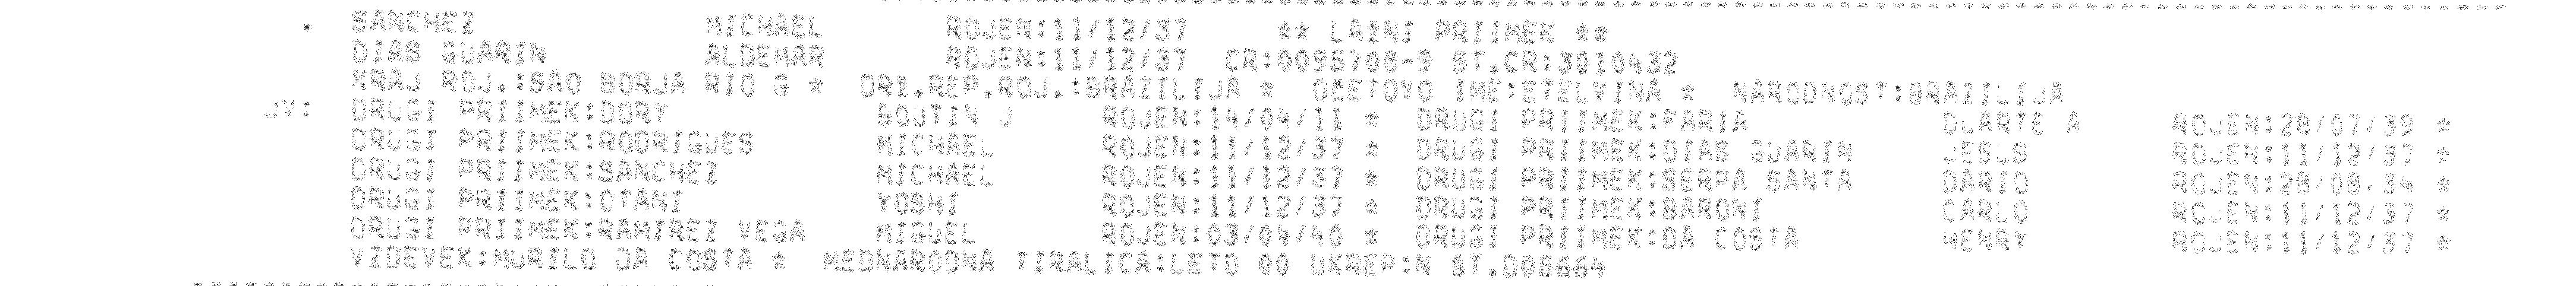 SANCHEZ MICHAEL ROJEN:11/12/37 ** LAZNI PRIIMEK **
DIAS GUARIN ALDEMAR ROJEN:11/12/37 CR:0095708-9 ST.CR:3010432
KRAJ ROJ.:SAO BORJA RIO G * DRZ.REP.ROJ.:BRAZILIJA * OCETOVO IME:ETELVINA * NARODNOST:BRAZILIJA
DRUGI PRIIMEK:DORY GOUTIN J ROJEN:14/04/11 * DRUGI PRIIMEK:FARIA DUARTE A ROJEN:28/07/39 *
DRUGI PRIIMEK:RODRIGUES MICHAEL ROJEN:11/12/37 * DRUGI PRIIMEK:DIAS GUARIN JESUS ROJEN:11/12/37 *
DRUGI PRIIMEK:SANCHEZ MICHAEL ROJEN:11/12/37 * DRUGI PRIIMEK:SERPA SANTA DARIO ROJEN:28/08.34 *
DRUGI PRIIMEK:OTANI YOSHI ROJEN:11/12/37 * DRUGI PRIIMEK:BARONI CARLO ROJEN:11/12/37 *
DRUGI PRIIMEK:RAMIREZ VEGA MIGUEL ROJEN:03/04/40 * DRUGI PRIIMEK:DA COSTA HENRY ROJEN:11/12/37 *
VZDEVEK:MURILO DA COSTA * MEDNARODNA TIRALICA:LETO 00 UKREP:N ST.D06664